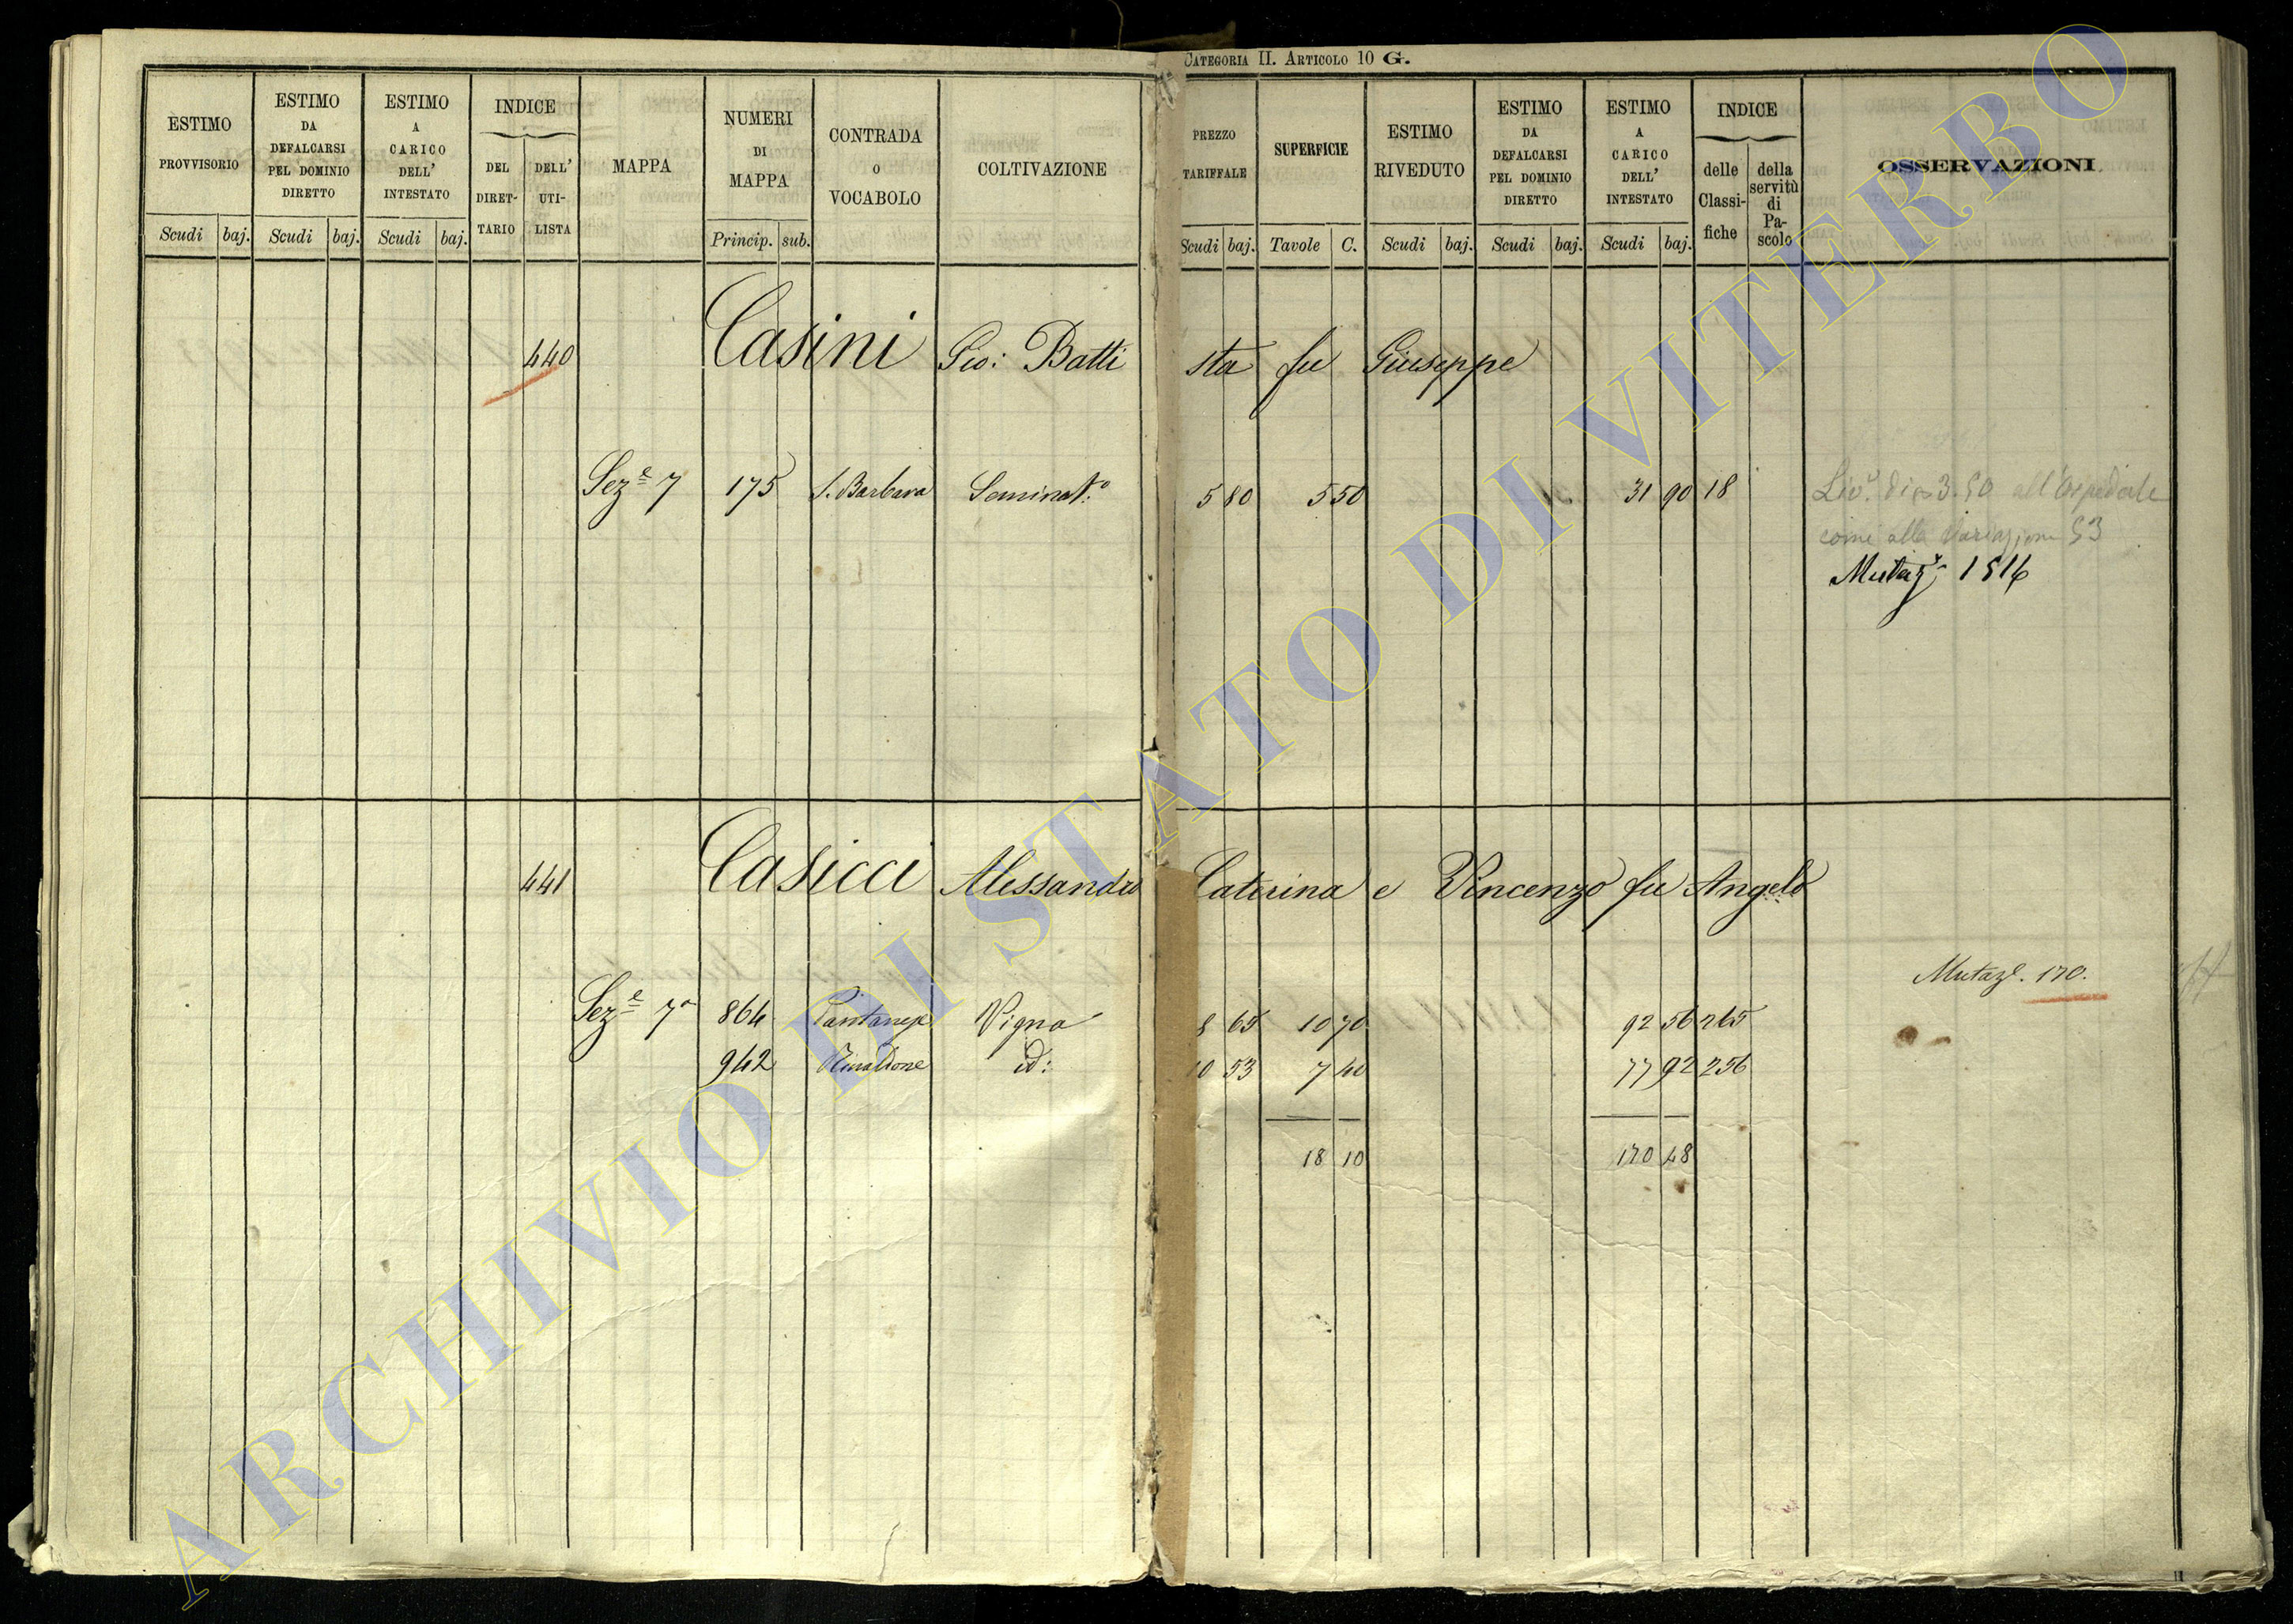 CATEGORIA II. ARTICOLO 10 G.
ESTIMO PROVVISORIO
Scudi baj.
ESTIMO DA DEFALCARSI PEL DOMINIO DIRETTO
Scudi baj.
ESTIMO A CARICO DELL' INTESTATO
Scudi baj.
INDICE
DEL DIRET- TARIO
DELL' UTI- LISTA
MAPPA
NUMERI DI MAPPA
Princip. sub.
CONTRADA O VOCABOLO
COLTIVAZIONE
PREZZO TARIFFALE
Scudi baj.
SUPERFICIE
Tavole C.
ESTIMO RIVEDUTO
Scudi baj.
ESTIMO DA DEFALCARSI PEL DOMINIO DIRETTO
Scudi baj.
ESTIMO A CARICO DELL' INTESTATO
Scudi baj.
INDICE
delle Classi- fiche
della servitù di Pa- scolo
OSSERVAZIONI.
440 Casini Gio: Batti sta fu Giuseppe
Sez.e 7 175 S. Barbara Seminat.o 5 80 5 50 31 90 18
all'Ospedale
come alla Variazione 53
Mutaz.e 1516
441 Casicci Alessandro Caterina e Vincenzo fu Angelo
Mutaz.e 170.
Sez.e 7a 864 Vigna 8 65 10 70 92 56 265
942 id: 10 53 7 40 77 92 256
18 10 170 48
ARCHIVIO DI STATO DI VITERBO